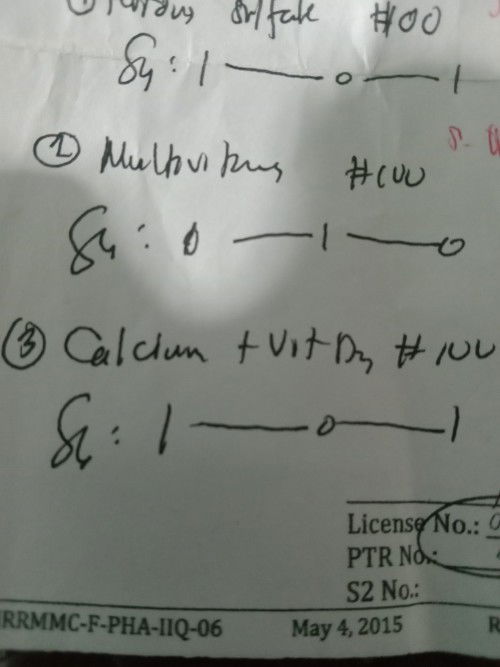 ① Ferrous Sulfate #100
Sig: 1 — 0 — 1
② Multivitamins #100
Sig: 0 — 1 — 0
③ Calcium + Vit D3 #100
Sig: 1 — 0 — 1
License No.:
PTR No.:
S2 No.:
RRMMC-F-PHA-IIQ-06 May 4, 2015 R